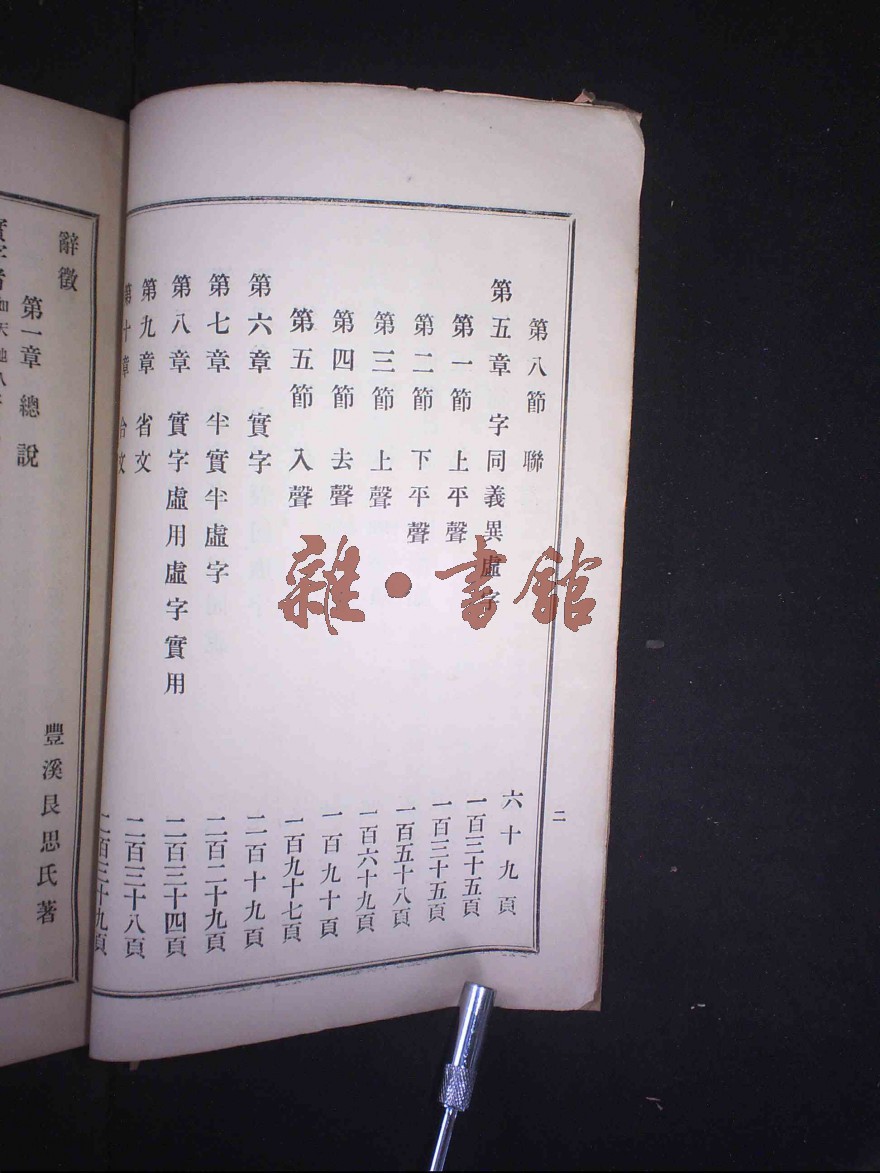 二
第八節 聯 六十九頁
第五章 字同義異虛字 一百三十五頁
第一節 上平聲 一百三十五頁
第二節 下平聲 一百五十八頁
第三節 上聲 一百六十九頁
第四節 去聲 一百九十頁
第五節 入聲 一百九十七頁
第六章 實字 二百十九頁
第七章 半實半虛字 二百二十九頁
第八章 實字虛用虛字實用 二百三十四頁
第九章 省文 二百三十八頁
第十章 文 二百三十九頁
雜·書館
辭徵
豐溪艮思氏著
第一章 總說
實字者